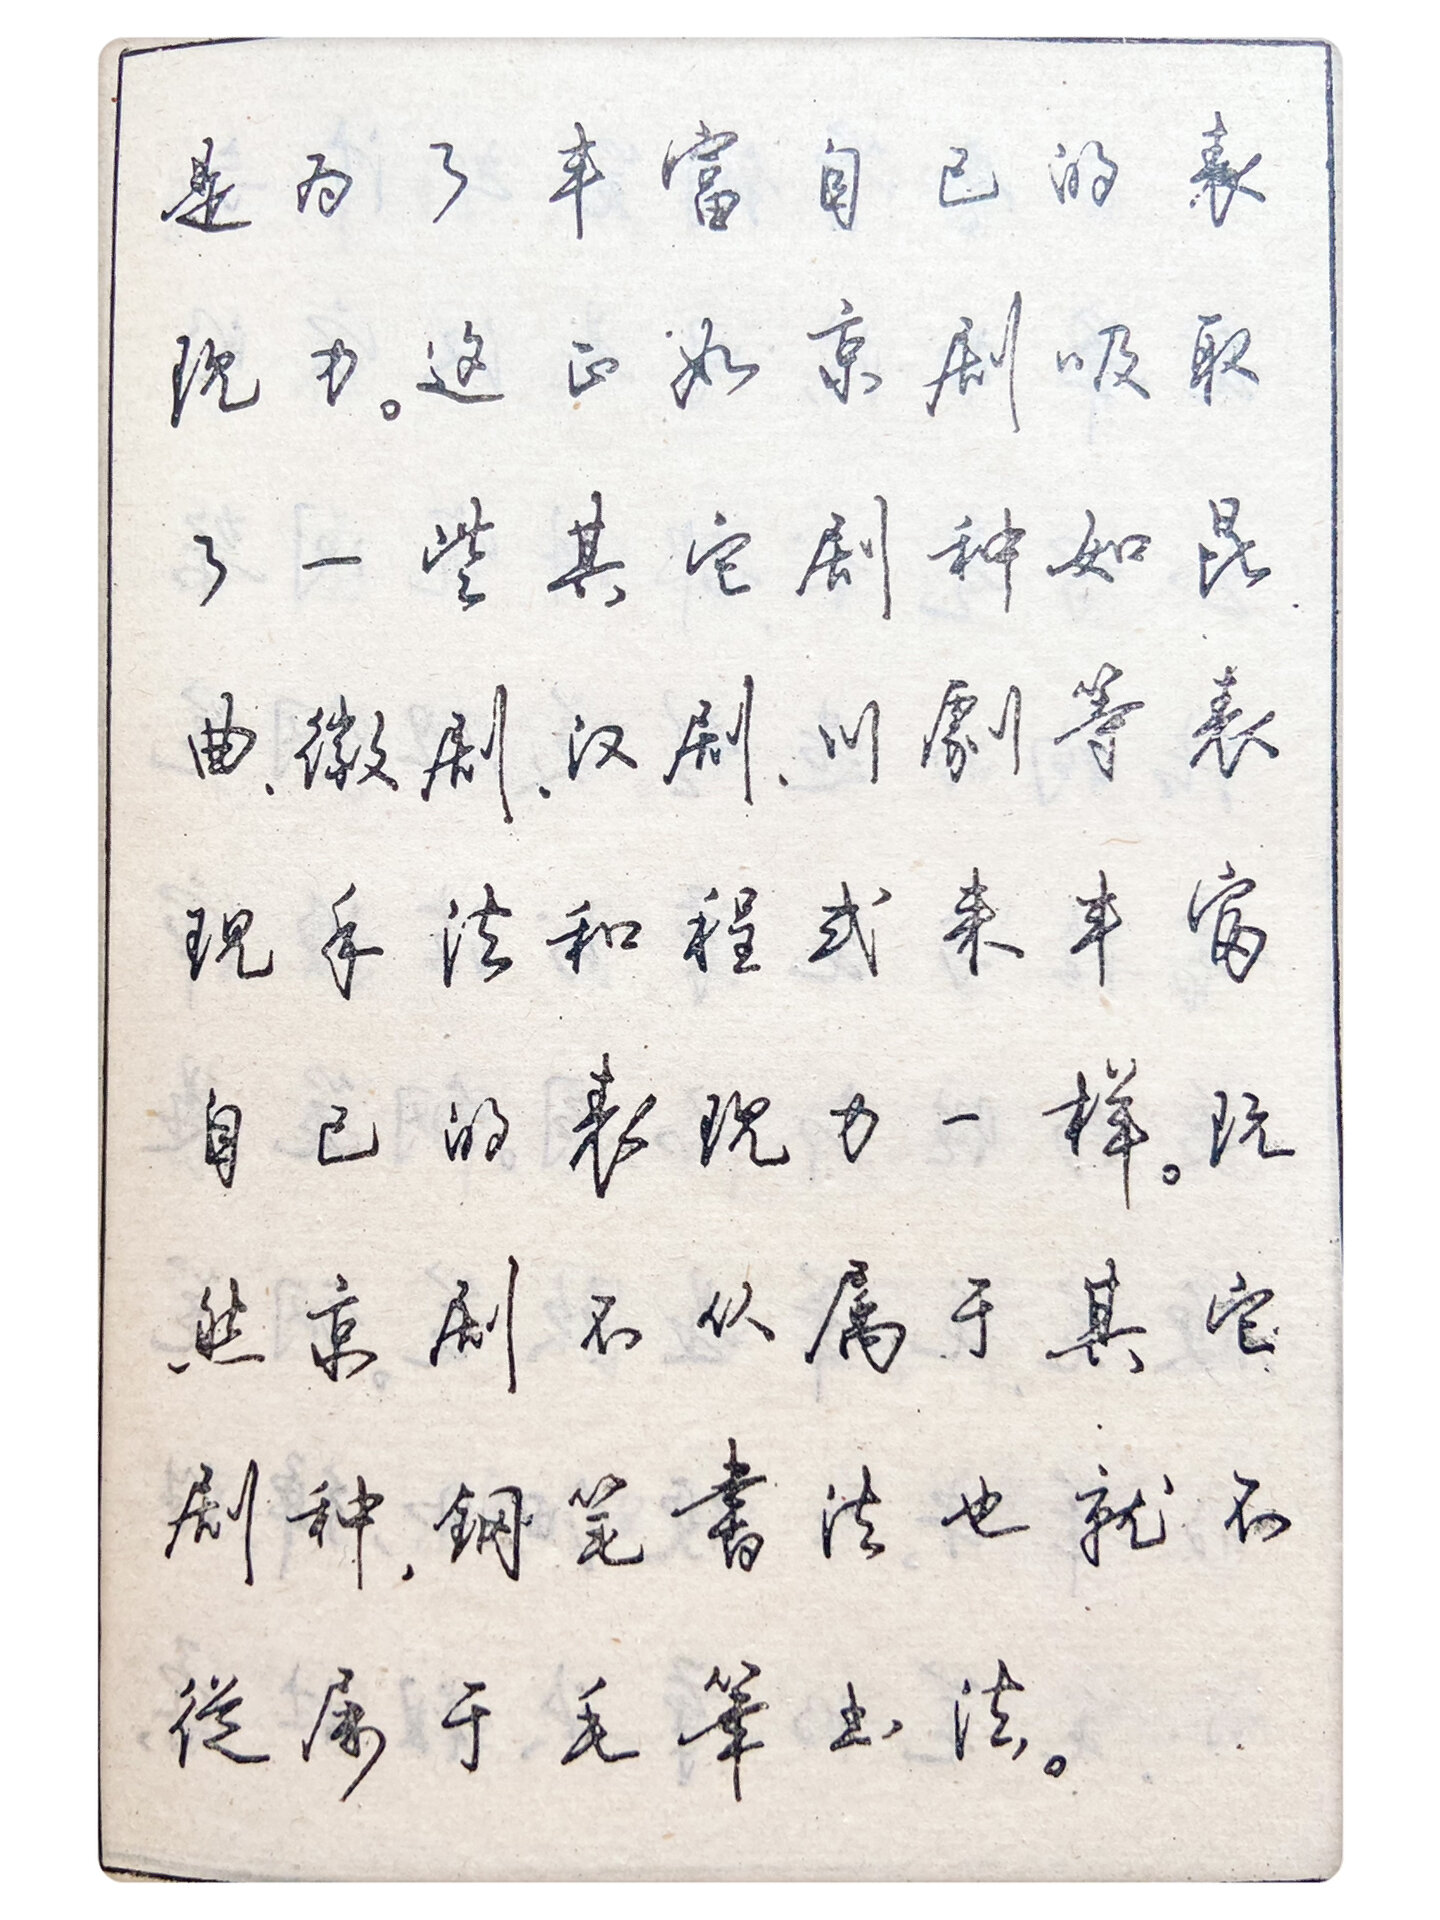 是为了丰富自己的表
现力。这正如京剧吸取
了一些其它剧种如昆
曲、徽剧、汉剧、川劇等表
现手法和程式来丰富
自己的表现力一样。既
然京剧不从属于其它
剧种,钢笔書法也就不
從属于毛筆书法。